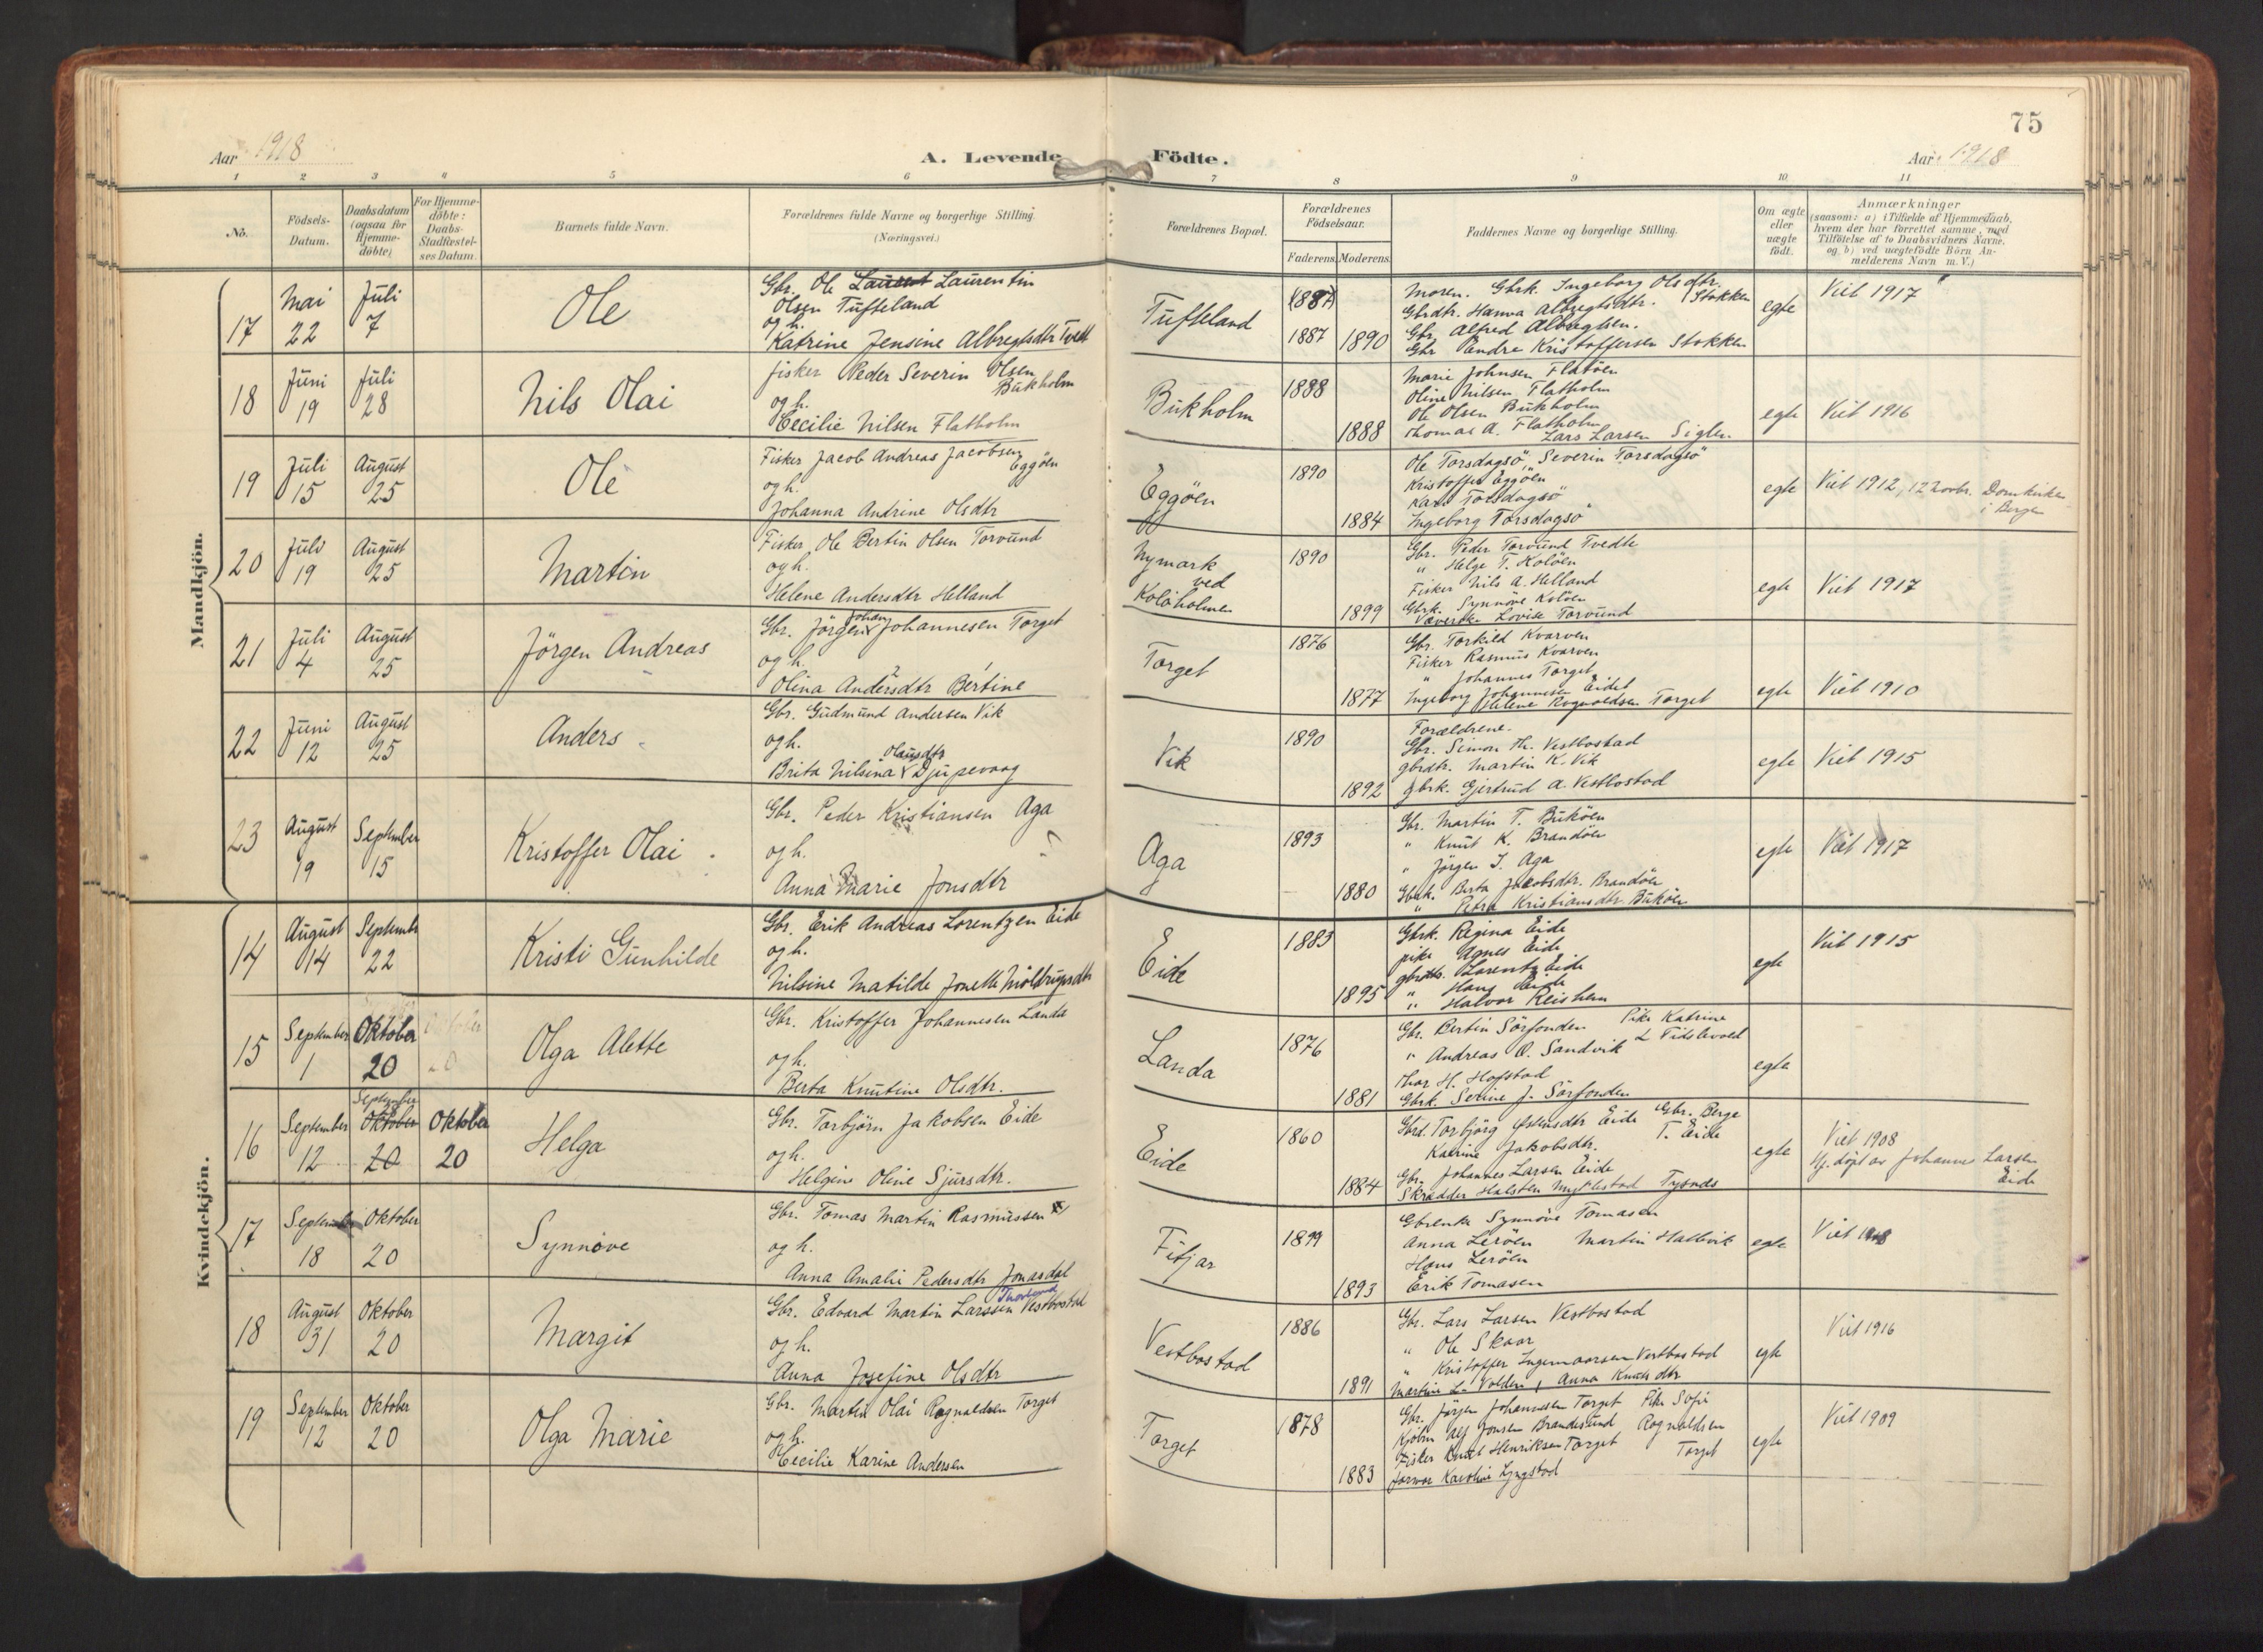 75
Aar 1918
A. Levende Födte.
Aar 1918
1 2 3 4 5 6 7 8 9 10 11
No.
Födsels-
Datum.
Daabsdatum
(ogsaa for
Hjemme-
döbte)
For Hjemme-
döbte:
Daabs-
Stadfæstel-
ses Datum.
Barnets fulde Navn.
Forældrenes fulde Navne og borgerlige Stilling.
(Næringsvei.)
Forældrenes Bopæl.
Forældrenes
Födselsaar.
Faderens. Moderens.
Faddernes Navne og borgerlige Stilling.
Om ægte
eller
uægte
födt.
Anmærkninger
(saasom: a) i Tilfælde af Hjemmedaab,
hvem der har forrettet samme, med
Tilföielse af to Daabsvidners Navne,
og b) ved uægtefödte Börn An-
melderens Navn m. V.)
Mandkjön.
17
Mai
22
Juli
7
Ole
Gbr. Ole Laurent Laurentin
Olsen Tufteland
og h.
Katrine Jensine Albregtsdtr Tvedt
Tufteland
1887
1887 1890
Moren. Gbrk. Ingeborg Olsdtr.
Gbrdtr. Hanna Albregtsdtr. Stokken
Gbr. Alfred Albregtsen.
Gbr Peandre Kristoffersen Stokken
egte
Viet 1917
18
Juni
19
Juli
28
Nils Olai
Fisker Peder Severin Olsen
Bukholm
og h.
Cecilie Nilsen Flatholm
Bukholm
1888
1888
Marie Johnsen Flatöen
Oline Nilsen Flatholm
Ole Olsen Bukholm
Thomas A. Flatholm
Lars Larsen Siglen.
egte
Viet 1916
19
Juli
15
August
25
Ole
Fisker Jacob Andreas Jacobsen
Eggöen
og h.
Johanna Andrine Olsdtr
Eggöen
1890
1884
Ole Torsdagsö, Severin Torsdagsö
Kristoffer Eggöen
Karl Torsdagsö
Ingeborg Torsdagsö
egte
Viet 1912, 12 novbr. Domkirken
i Bergen
20
Juli
19
August
25
Martin
Fisker Ole Bertin Olsen Torvund
og h.
Helene Andersdtr Helland
Nymark
ved
Kolöholmen
1890
1899
Gbr. Peder Torvund Tvedte
" Helge T. Kolöen
Fisker Nils A. Helland
Gbrk. Synnöve Kolöen
Væverske Lovise Torvund
egte
Viet 1917
21
Juli
4
August
25
Jörgen Andreas
Gbr. Jörgen Johan Johannesen Torget
og h.
Olina Andersdtr Bertine
Torget
1876
1877
Gbr. Torkild Kvarven
Fisker Rasmus Kvarven
" Johannes Torget
Ingeborg Johannesen Eidet
Helene Rognvaldsen Torget
egte
Viet 1910
22
Juni
12
August
25
Anders
Gbr. Gudmund Andersen Vik
og h.
Olausdtr
Brita Nilsina Djupevaag
Vik
1890
1892
Forældrene.
Gbr. Simon Th. Vestbostad
gbrdtr. Martin K. Vik
gbrk. Gjertrud A. Vestbostad
egte
Viet 1915
23
August
19
September
15
Kristoffer Olai
Gbr. Peder Kristiansen Aga
og h.
Anna Marie Jonsdtr
Aga
1893
1880
Gbr. Martin T. Buköen
" Knut K. Brandöen
" Jörgen J. Aga
Gbrk. Berta Jacobsdtr. Brandöen
" Petra Kristiansdtr Buköen
egte
Viet 1917
Kvindekjön.
14
August
14
September
22
Kristi Gunhilde
Gbr. Erik Andreas Lorentzen Eide
og h.
Nilsine Matilde Jonette Möldrupsdtr
Eide
1883
1895
Gbrk. Regina Eide
pike Agnes Eide
gbrdtr. Lorentz Eide
" Hans Eide
" Halvor Reishem
egte
Viet 1915
15
September
1
Oktober
20
Oktober
20
Olga Alette
Gbr. Kristoffer Johannesen Landa
og h.
Berta Knutine Olsdtr.
Landa
1876
1881
Gbr. Bertin Sörfonden Pike Katrine
" Andreas O. Sandvik L Tidslevold
Thor H. Hofstad
Gbrk. Serine J. Sörfonden
egte
16
September
12
September
Oktober
20
Oktober
20
Helga
Gbr. Torbjörn Jakobsen Eide
og h.
Helgine Oline Sjursdtr.
Eide
1860
1884
Gbrd. Torbjörg Östensdtr Eide Gbr. Berge
Katrine Jakobsdtr. T. Eide
Gbr. Johannes Larsen Eide
Skrædder Halsten Myklestad Tysnes
egte
Viet 1908
Hj. döpt av Johannes Larsen
Eide
17
September
18
Oktober
20
Synnöve
Gbr. Tomas Martin Rasmussen
og h.
Anna Amalie Pedersdtr Jonasdal
Fitjar
1899
1893
Gbrenke Synnöve Tomasen
Anna Leröen Martin Hallevik
Hans Leröen
Erik Tomasen
egte
Viet 1918
18
August
31
Oktober
20
Margit
Gbr. Edvard Martin Larssen Vestbostad
og h.
Anna Josefine Olsdtr
Vestbostad
1886
1891
Gbr. Lars Larsen Vestbostad
" Ole Skaar
" Kristoffer Ingemaarsen Vestbostad
Martine L. Volden, Anna Knutsdtr
egte
Viet 1916
19
September
12
Oktober
20
Olga Marie
Gbr. Martin Olai Rognaldsen Torget
og h.
Cecilie Karine Andersen
Torget
1878
1883
Gbr. Jörgen Johannesen Torget Pike Sofie
Kjöbm Alf Jonsen Brandesund Rognaldsen
Fisker Knut Henriksen Torget Torget
Jormor Karoline Lyngstad
egte
Viet 1909